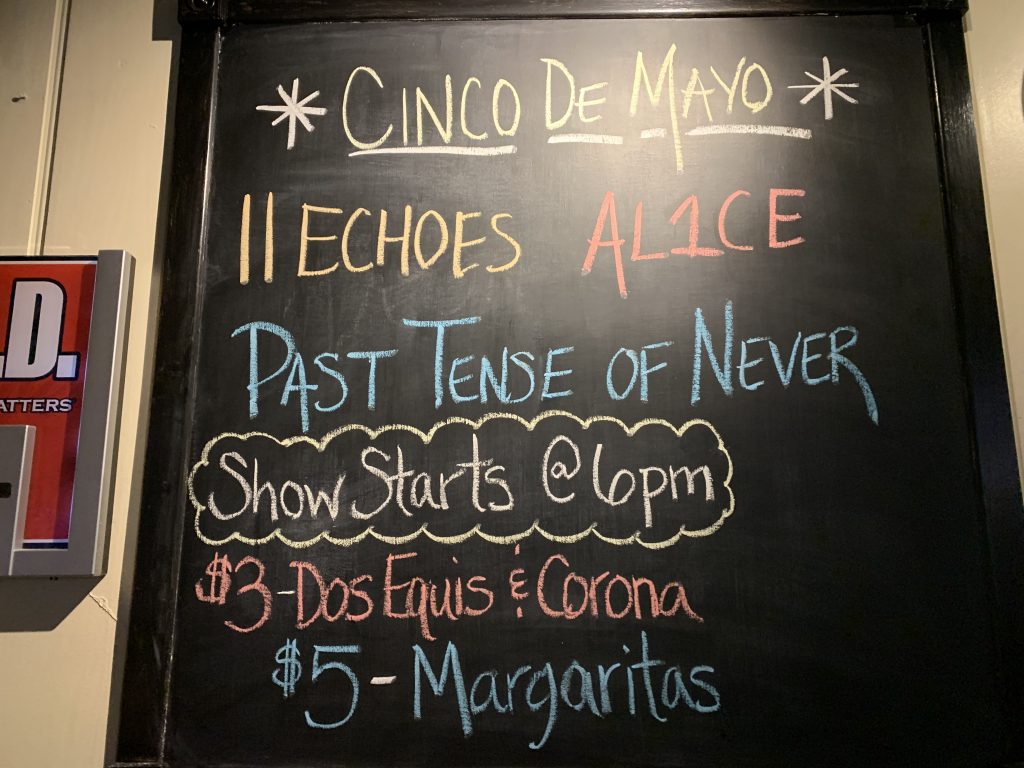 * CINCO DE MAYO *
11 ECHOES AL1CE
PAST TENSE OF NEVER
Show Starts @ 6pm
$3 - Dos Equis & Corona
$5 - Margaritas
D.
ATTERS